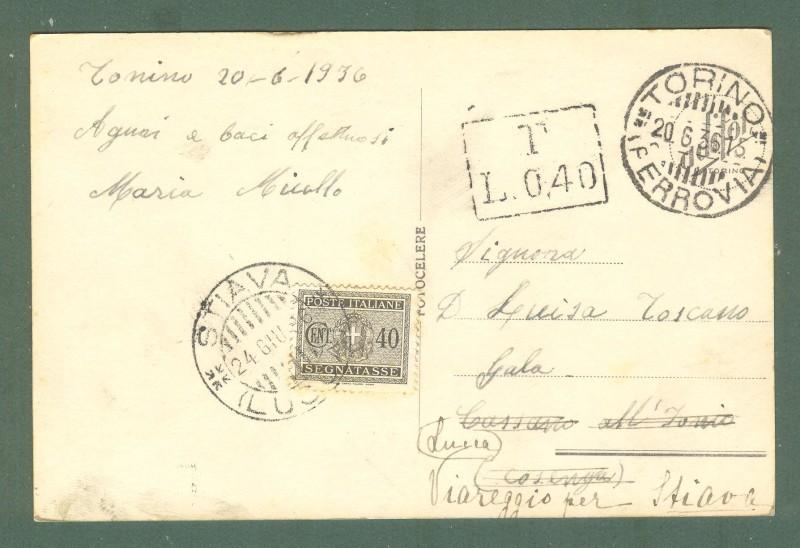 Torino 20-6-1936
Auguri e baci affettuosi
Maria
T
L. 0,40
TORINO
20 6 36
(FERROVIA)
TORINO
STIAVA
24 GIU
(LUC
POSTE ITALIANE
CENT. 40
SEGNATASSE
FOTOCELERE
Signora
D. Luisa Toscano
Gala
Cassano all'Ionio
Lucca
(Cosenza)
Viareggio per Stiava